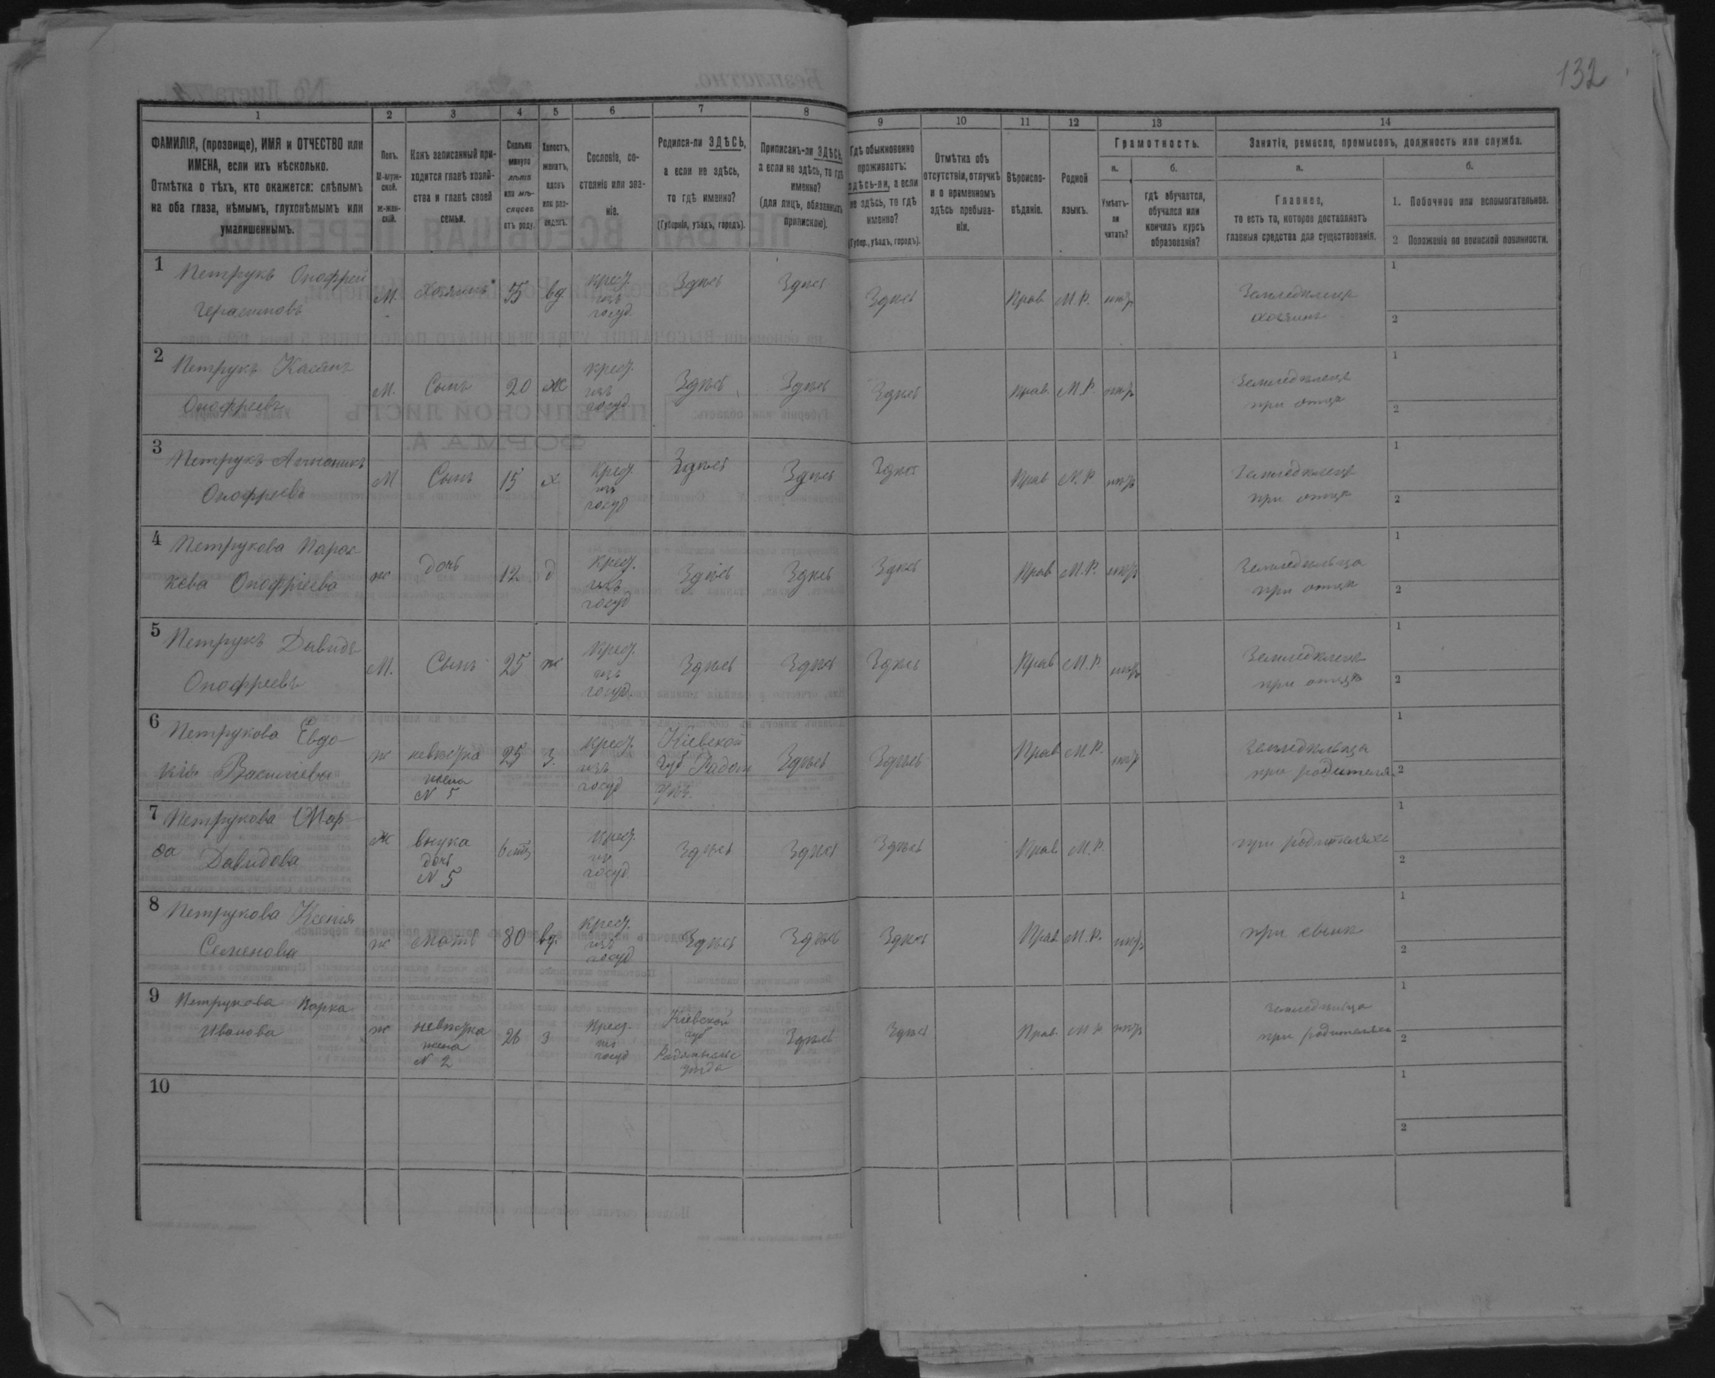 132
1 2 3 4 5 6 7 8 9 10 11 12 13 14
ФАМИЛІЯ, (прозвище), ИМЯ и ОТЧЕСТВО или
ИМЕНА, если ихъ нѣсколько.
Отмѣтка о тѣхъ, кто окажется: слѣпымъ
на оба глаза, нѣмымъ, глухонѣмымъ или
умалишеннымъ.
Полъ.
М-муж-
ской.
ж-жен-
скій.
Какъ записанный при-
ходится главѣ хозяй-
ства и главѣ своей
семьи.
Сколько
минуло
лѣтъ
или мѣ-
сяцевъ
отъ роду.
Холостъ,
женатъ,
вдовъ
или раз-
веденъ.
Сословіе, со-
стояніе или зва-
ніе.
Родился-ли ЗДѢСЬ,
а если не здѣсь,
то гдѣ именно?
(Губернія, уѣздъ, городъ).
Приписанъ-ли ЗДѢСЬ,
а если не здѣсь, то гдѣ
именно?
(для лицъ, обязанныхъ
припискою).
Гдѣ обыкновенно
проживаетъ:
здѣсь-ли, а если
не здѣсь, то гдѣ
именно?
(Губер., уѣздъ, городъ).
Отмѣтка объ
отсутствіи, отлучкѣ
и о временномъ
здѣсь пребыва-
ніи.
Вѣроиспо-
вѣданіе.
Родной
языкъ.
Грамотность.
а.
Умѣетъ-
ли
читать?
б.
гдѣ обучается,
обучался или
кончилъ курсъ
образованія?
Занятіе, ремесло, промыселъ, должность или служба.
а.
Главное,
то есть то, которое доставляетъ
главныя средства для существованія.
б.
1. Побочное или вспомогательное.
2 Положеніе по воинской повинности.
1 Петрукъ Онофрей
Герасимовъ
М. Хозяинъ 55 вд крест. изъ госуд. Здѣсь Здѣсь Здѣсь Прав М.Р. нѣтъ Земледѣлецъ хозяинъ 1 2
2 Петрукъ Касянъ
Онофреевъ
М. Сынъ 20 ж крест. изъ госуд Здѣсь Здѣсь Здѣсь Прав М.Р. нѣтъ Земледѣлецъ при отцѣ 1 2
3 Петрукъ Антонинъ
Онофреевъ
М Сынъ 15 х крест. изъ госуд Здѣсь Здѣсь Здѣсь Прав М.Р нѣтъ Земледѣлецъ при отцѣ 1 2
4 Петрукова Парас-
кева Онофріева
ж дочь 12 д крест. изъ госуд Здѣсь Здѣсь Здѣсь Прав М.Р. нѣтъ Земледѣлица при отцѣ 1 2
5 Петрукъ Давидъ
Онофреевъ
М. Сынъ 25 ж крест. изъ госуд. Здѣсь Здѣсь Здѣсь Прав М.Р нѣтъ Земледѣлецъ при отцѣ 1 2
6 Петрукова Евдо-
кія Василіева
ж невѣстка жена N 5 25 з. крест. изъ госуд Кіевской губ Радом уѣз. Здѣсь Здѣсь Прав М.Р. нѣтъ Земледѣлица при родителях 1 2
7 Петрукова Мар-
фа Давидова
ж внука дочь N 5 крест. из госуд Здѣсь Здѣсь Здѣсь Прав М.Р. при родителяхъ 1 2
8 Петрукова Ксенія
Семенова
ж мать 80 вд. крест. изъ госуд Здѣсь Здѣсь Здѣсь Прав М.Р. нѣтъ при сынѣ 1 2
9 Петрукова Варка
Иванова
ж невѣстка жена N 2 26 з крест. из госуд Кіевской губ Радомысьс уѣзда Здѣсь Здѣсь Прав М Р нѣтъ Земледѣлица при родителяхъ 1 2
10 1 2